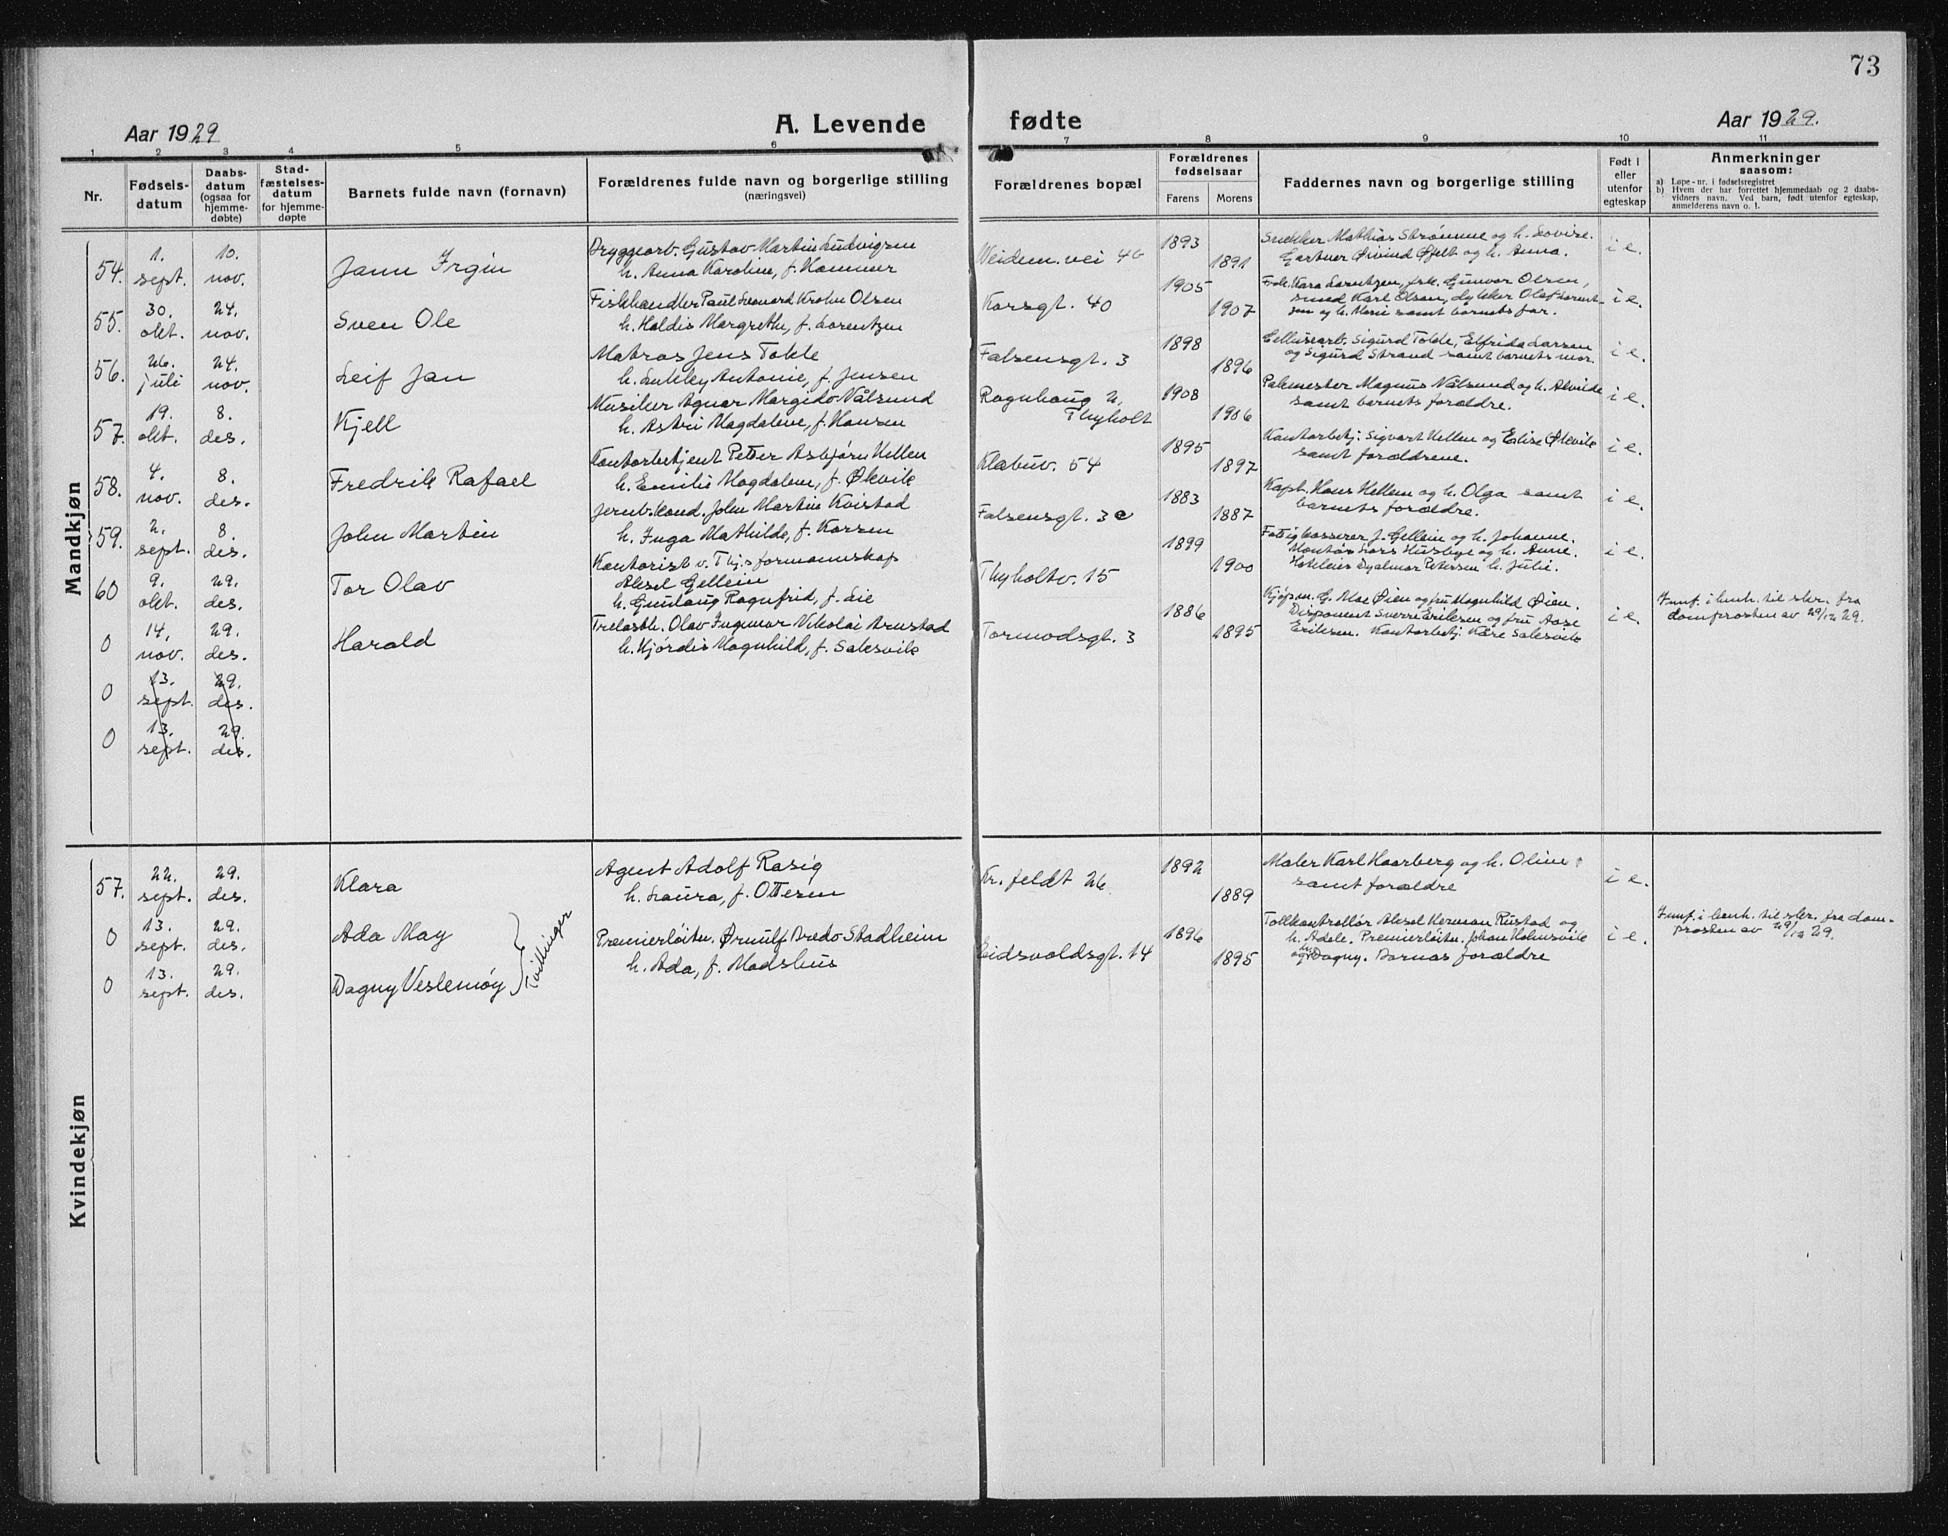 73
Aar 1929
A. Levende
fødte
Aar 1929.
1 2 3 4 5 6 7 8 9 10 11
Nr.
Fødsels-
datum
Daabs-
datum
(ogsaa for
hjemme-
døbte)
Stad-
fæstelses-
datum
for hjemme-
døpte
Barnets fulde navn (fornavn)
Forældrenes fulde navn og borgerlige stilling
(næringsvei)
Forældrenes bopæl
Forældrenes
fødselsaar
Farens
Morens
Faddernes navn og borgerlige stilling
Født i
eller
utenfor
egteskap
Anmerkninger
saasom:
a) Løpe-nr. i fødselsregistret
b) Hvem der har forrettet hjemmedaab og 2 daabs-
vidners navn. Ved barn, født utenfor egteskap,
anmelderens navn o. l.
Mandkjøn
54. 1. sept. 10. nov.
Jann Irgin
Bryggearb. Gustav Martin Ludvigsen
h. Anna Karoline, f. Hammer
Weidem. vei 40
1893
1891
Snekker Mathias Strømme og h. Lovise.
Gartner Øivind Øfelt og h. Anna.
i e.
55. 30. okt. 24. nov.
Sven Ole
Fiskehandler Paul Leonard Krohn Olsen
h. Haldis Margrethe, f. Lorentzen
Korsgt. 40
1905
1907
Frk. Kara Lorntzen, frk. Gunvor Olsen,
smed Karl Olsen, dykker Olaf Lorent-
zen og h. Marie samt barnets far.
i e.
56. 26. juli 24. nov.
Leif Jan
Matros Jens Tokle
h. Antonie, f. Jensen
Falsensgt. 3
1898
1896
Cellusearb. Sigurd Tokle, Elfrida Larsen
og Sigurd Strand samt barnets mor.
i e.
57. 19. okt. 8. des.
Kjell
Musiker Agnar Margido Nålsund
h. Astri Magdalene, f. Hansen
Ragnhaug
Thyholt
1908
1906
Pakmester Magnus Nålsund og h. Alvilde
samt barnets forældre.
i e.
58. 4. nov. 8. des.
Fredrik Rafael
Kontorbetjent Petter Asbjørn Hellem
h. Emilie Magdalene, f. Økvik
Klæbuv. 54
1895
1897
Kontorbetj. Sigvart Hellem og Elise Økvik
samt forældrene.
i e.
59. 2. sept. 8. des.
John Martin
Jernb.kond. John Martin Kvistad
h. Inga Mathilde, f. Karsen
Falsensgt. 3 c
1883
1887
Kapt. Hans Hellem og h. Olga samt
barnets forældre.
i e.
60 9. okt. 29. des.
Tor Olav
Kontorist v. Thj.s formannskap
Aksel Gellein
h. Gunlaug Ragnfrid, f. Lie
Thyholtv. 15
1899
1900
Fattigkasserer J. Gellein og h. Johanne.
Montør Lars Husbye og h. Anne.
Hoteleier Hjalmar Petersen h. Julie.
i e.
0 14. nov. 29. des.
Harald
Trelasth. Olav Ingemar Nikolai Arnstad
h. Hjørdis Magnhild, f. Salesvik
Tormodsgt. 3
1886
1895
Kjøpm. G. Moe Øien og fru Magnhild Øien.
Disponent Sverre Eriksen og fru Aase
Eriksen. Kontorbetj. Kåre Salesvik
i e.
Innf. i henh. til skr. fra
domprosten av 29/12 29.
0 13. sept. 29. des.
0 13. sept. 29. des.
Kvindekjøn
57. 22. sept. 29. des.
Klara
Agent Adolf Rasig
h. Laura, f. Ottesen
Kr. feldt 26.
1892
1889
Maler Karl Haarberg og h. Oline
samt forældre
i e.
0 13. sept. 29. des.
Ada May
Tvillinger
Premierløitn. Ørnulf Bredo Stadheim
h. Ada, f. Madshus
Eidsvoldsgt. 14
1896
1895
Tollkontrollør Aksel Herman Rustad og
h. Adele. Premierløitn. Johan Holmsvik
og fru Dagny. Barnas forældre
i e.
Innf. i henh. til skr. fra dom-
prosten av 29/12 29.
0 13. sept. 29. des.
Dagny Veslemøy